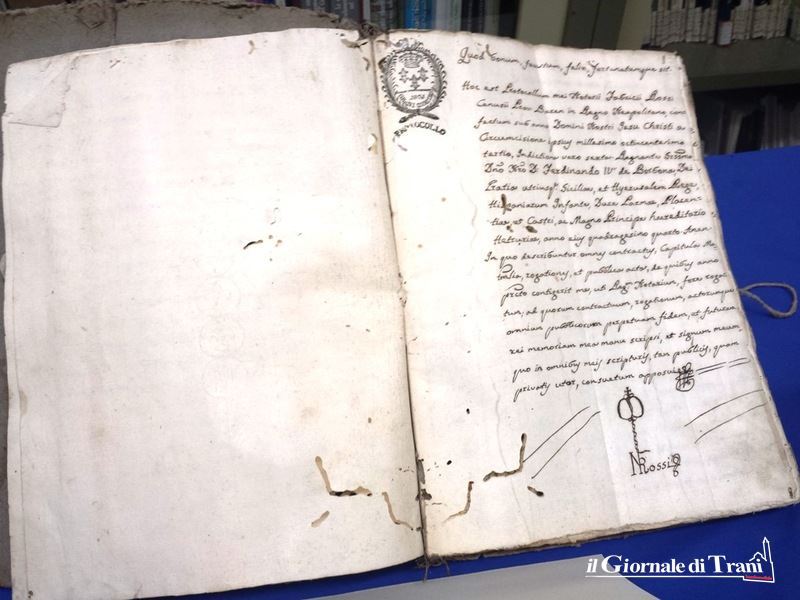 Quod bonum, faustum, felix, fortunatumque sit
PROTOCOLLO
Hoc est Protocollum mei Notarii Fabricii Rossi
Canusii Prov. Baren in Regno Neapolitano, con
fectum sub anno Domini Nostri Jesu Christi a
Circumcisione ipsius millesimo octincentesimo
tertio, Indictione vero sexta Regnante
Dno Nro D. Ferdinando IV. de Borbona, Dei
Gratia utriusq. Siciliae, et Hyerusalem Rege
Hispaniarum Infante, Duce Parmae, Placen
tiae, et Castri, ac Magno Principe haereditario
Hetruriae, anno ejus quadragesimo quarto Aman
In quo describuntur omnes contractus, Capitula Ma
trialia, rogationes, et publica acta, de quibus anno
prcto contigerit me, uti Reg. Notarium, fore rogat
tum; ad quorum contractuum, rogationum, actorumque
omnium publicorum perpetuam fidem, et futuram
rei memoriam mea manu scripsi, et signum meum
quo in omnibus meis scripturis, tan publicis, quam
privatis utor, consuetum apposui
NRossi
il Giornale di Trani